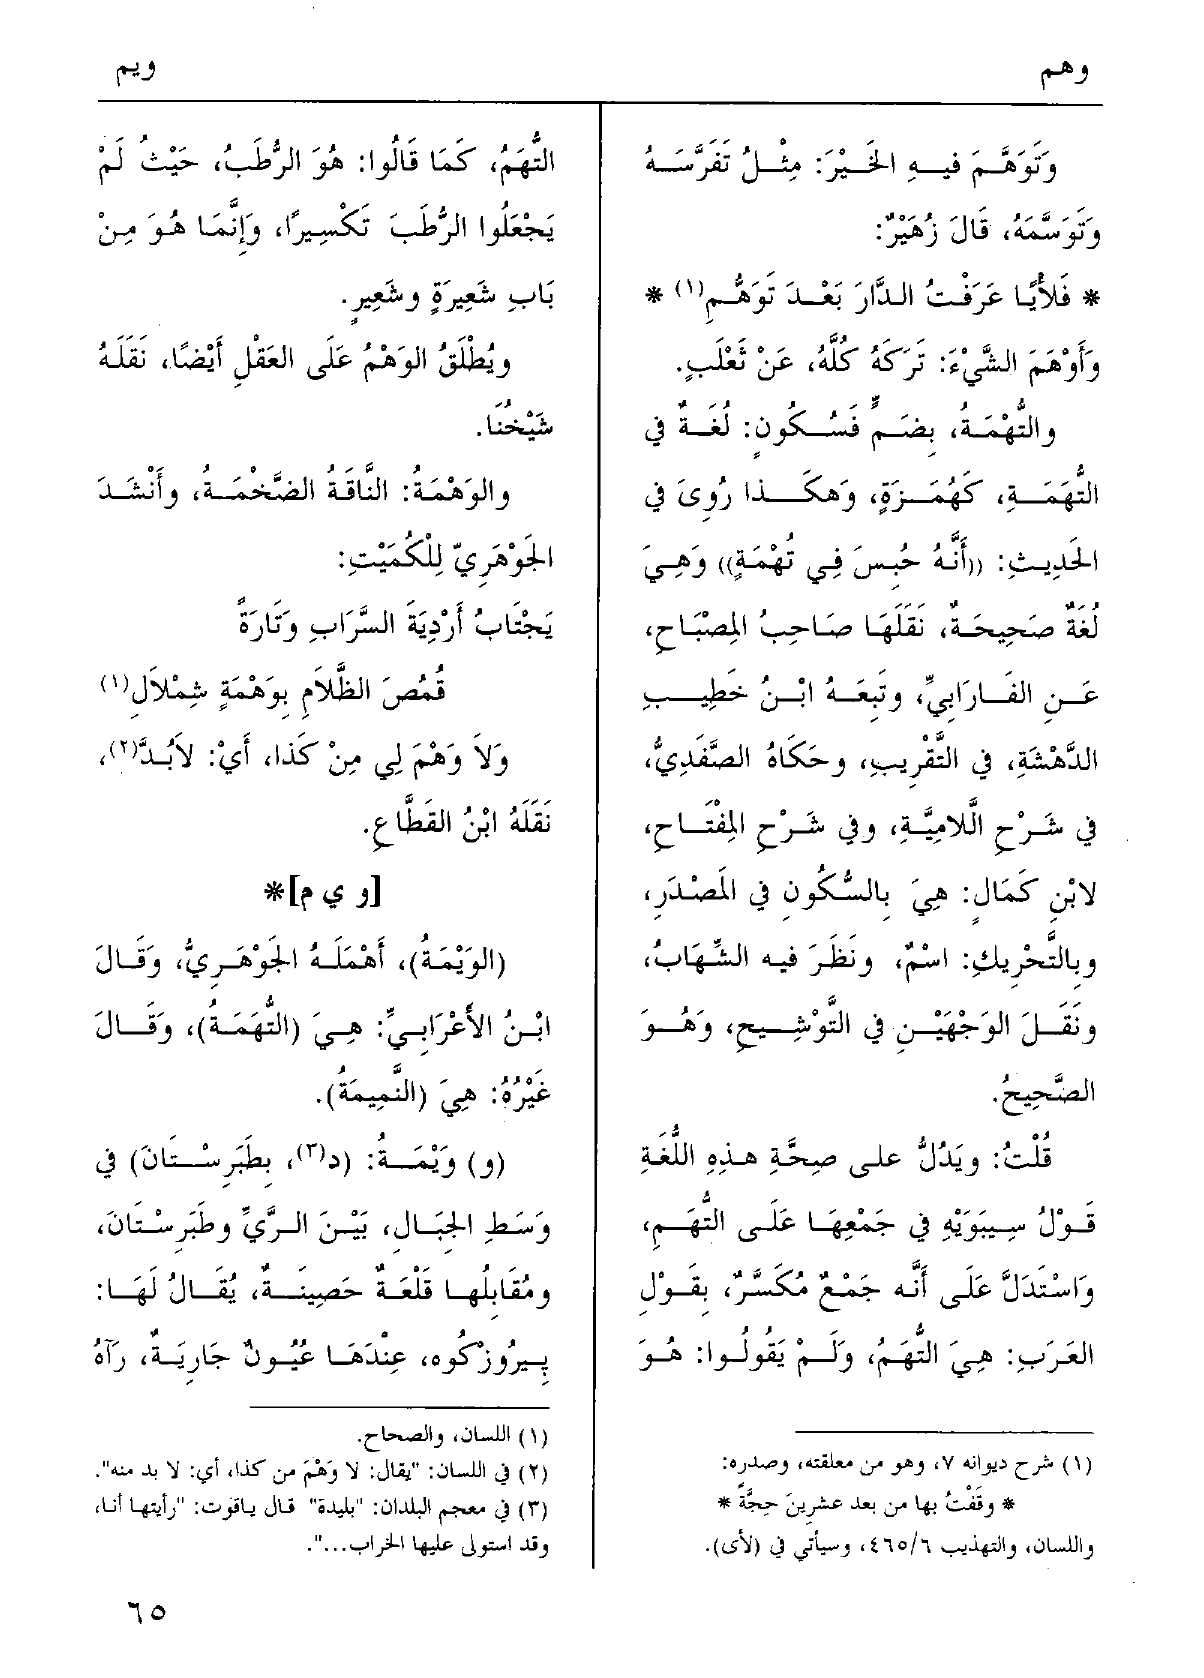 وهم
ويم
وَتَوَهَّمَ فيه الخَيْرَ: مِثْلُ تَفَرَّسَهُ
وَتَوَسَّمَهُ، قَالَ زُهَيْرٌ:
* فَلأْيًا عَرَفْتُ الدَّارَ بَعْدَ تَوَهُّمِ(١) *
وَأَوْهَمَ الشَّيْءَ: تَرَكَهُ كُلَّهُ، عَنْ ثَعْلَبٍ.
والتُّهْمَةُ، بِضَمٍّ فَسُكُونٍ: لُغَةٌ في
التُّهَمَةِ، كَهُمَزَةٍ، وَهكَذا رُوِىَ في
الحَدِيثِ: ((أَنَّهُ حُبِسَ فِي تُهْمَةٍ)) وَهِيَ
لُغَةٌ صَحِيحَةٌ، نَقَلَهَا صَاحِبُ المِصْبَاحِ،
عَنِ الفَارَابِيِّ، وتَبِعَهُ ابْنُ خَطِيبِ
الدَّهْشَةِ، في التَّقْرِيبِ، وحَكَاهُ الصَّفَدِيُّ،
في شَرْحِ الَّلامِيَّةِ، وفي شَرْحِ المِفْتَاحِ،
لابْنِ كَمَالٍ: هِيَ بالسُّكُونِ في المَصْدَرِ،
وبالتَّحْرِيكِ: اسْمٌ، ونَظَرَ فيه الشِّهَابُ،
ونَقَلَ الوَجْهَيْنِ في التَّوْشِيحِ، وَهُوَ
الصَّحِيحُ.
قُلْتُ: ويَدُلُّ على صِحَّةِ هذِهِ اللُّغَةِ
قَوْلُ سِيبَوَيْهِ في جَمْعِهَا عَلَى التُّهَمِ،
وَاسْتَدَلَّ عَلَى أَنَّه جَمْعٌ مُكَسَّرٌ، بِقَوْلِ
العَرَبِ: هِيَ التُّهَمُ، ولَمْ يَقُولُوا: هُوَ
(١) شرح ديوانه ٧، وهو من معلقته، وصدره:
* وقَفْتُ بها من بعد عشرينَ حِجَّةً *
واللسان، والتهذيب ٤٦٥/٦، وسيأتي في (لأى).
التُّهَمُ، كَمَا قَالُوا: هُوَ الرُّطَبُ، حَيْثُ لَمْ
يَجْعَلُوا الرُّطَبَ تَكْسِيرًا، وَإِنَّمَا هُوَ مِنْ
بَابِ شَعِيرَةٍ وشَعِيرٍ.
ويُطْلَقُ الوَهْمُ عَلَى العَقْلِ أَيْضًا، نَقَلَهُ
شَيْخُنَا.
والوَهْمَةُ: النَّاقَةُ الضَّخْمَةُ، وأَنْشَدَ
الجَوْهَرِيّ لِلْكُمَيْتِ:
يَجْتَابُ أَرْدِيَةَ السَّرَابِ وَتَارَةً
قُمُصَ الظَّلَامِ بِوَهْمَةٍ شِمْلَالِ(١)
وَلَا وَهْمَ لِي مِنْ كَذَا، أَيْ: لَابُدَّ(٢)،
نَقَلَهُ ابْنُ القَطَّاعِ.
[و ي م]*
(الوَيْمَةُ)، أَهْمَلَهُ الجَوْهَرِيُّ، وَقَالَ
ابْنُ الأَعْرَابِيِّ: هِيَ (التُّهَمَةُ)، وَقَالَ
غَيْرُهُ: هِيَ (النَّمِيمَةُ).
(و) وَيْمَةُ: (د(٣)، بِطَبَرِسْتَانَ) في
وَسَطِ الجِبَالِ، بَيْنَ الرَّيِّ وطَبَرِسْتَانَ،
ومُقَابِلُها قَلْعَةٌ حَصِينَةٌ، يُقَالُ لَهَا:
بِيرُوزْكُوه، عِنْدَهَا عُيُونٌ جَارِيَةٌ، رَآهُ
(١) اللسان، والصحاح.
(٢) في اللسان: "يقال: لا وَهْمَ من كذا، أي: لا بد منه".
(٣) في معجم البلدان: "بليدة" قال ياقوت: "رأيتها أنا،
وقد استولى عليها الخراب...".
٦٥